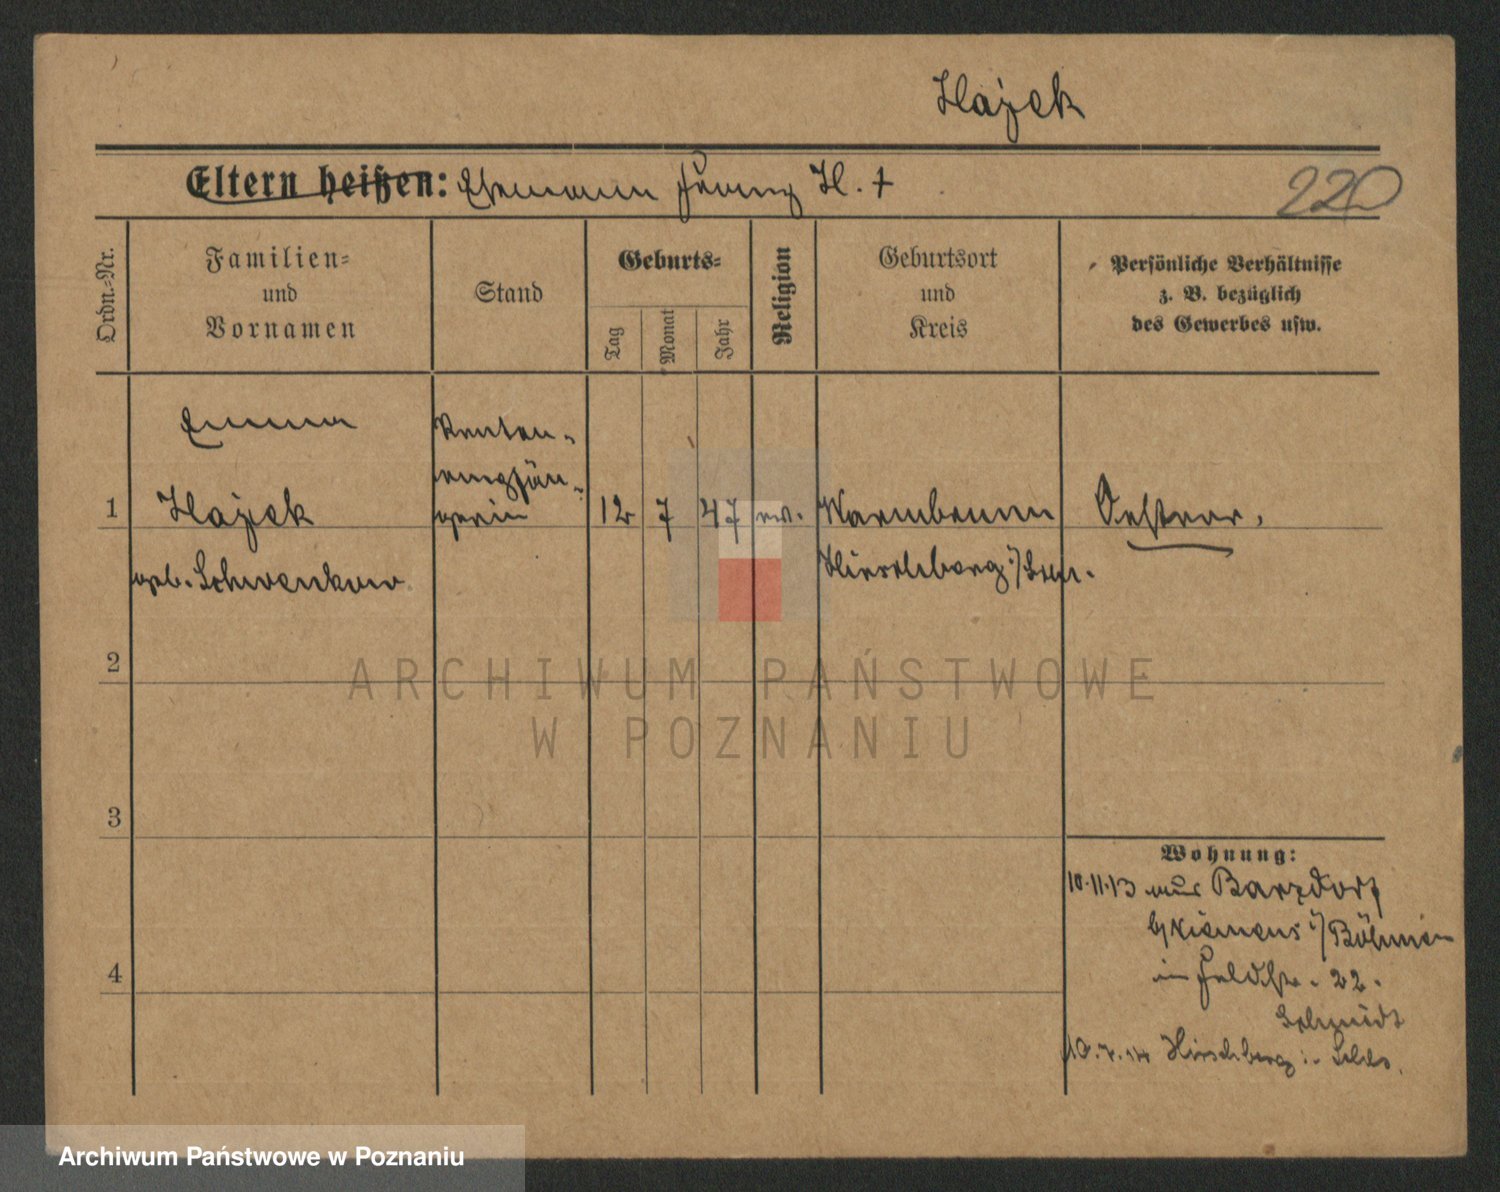 Hajek
Eltern heißen: Ehemann Franz H. †
220
Ordn.-Nr.
Familien-
und
Vornamen
Stand
Geburts-
Tag
Monat
Jahr
Religion
Geburtsort
und
Kreis
Persönliche Verhältnisse
z. B. bezüglich
des Gewerbes usw.
Emma
Renten-
empfän-
1 Hajek gerin 12 7 47 ev. Warmbrunn Oesterr.
geb. Schwenkow Hirschberg i/Schl.
2
ARCHIWUM PAŃSTWOWE
W POZNANIU
3
Wohnung:
10.11.13 aus Barzdorf
i/Böhmen
4
in Feldstr. 22.
Schmidt
10.7.14 Hirschberg i. Schles.
Archiwum Państwowe w Poznaniu